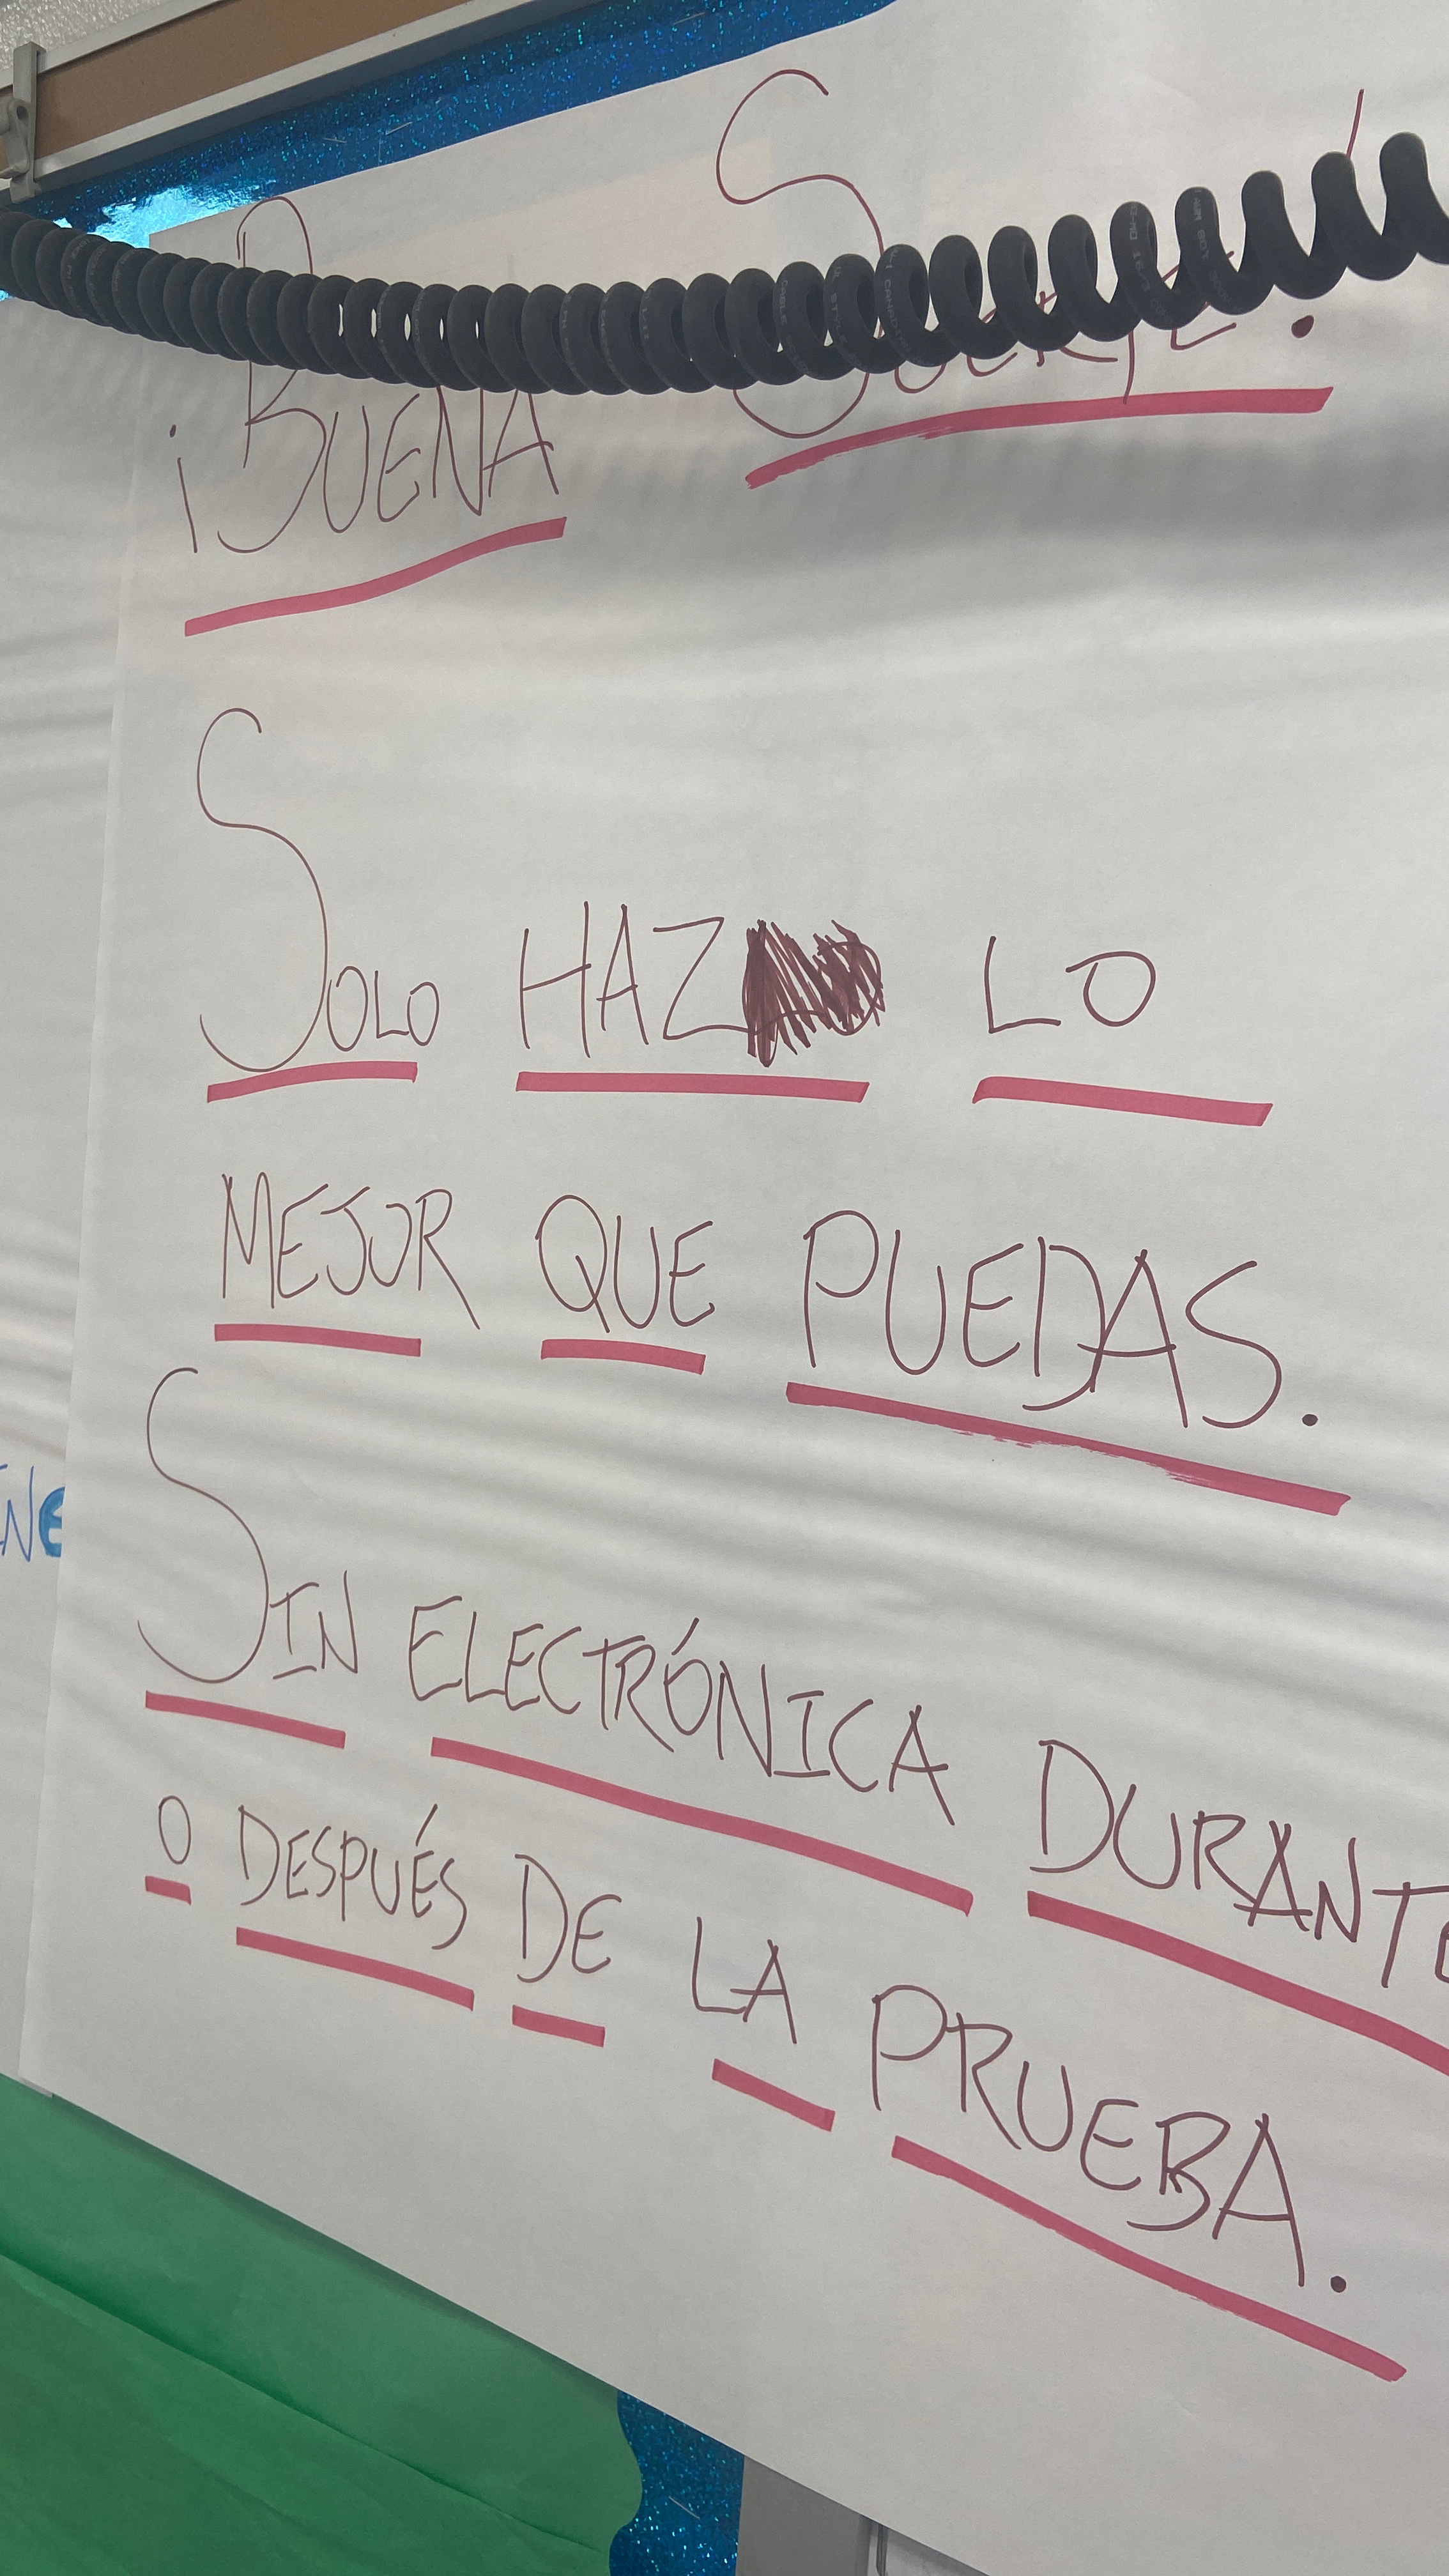 ¡BUENA SUERTE!
SOLO HAZ LO
MEJOR QUE PUEDAS.
SIN ELECTRÓNICA DURANTE
O DESPUÉS DE LA PRUEBA.